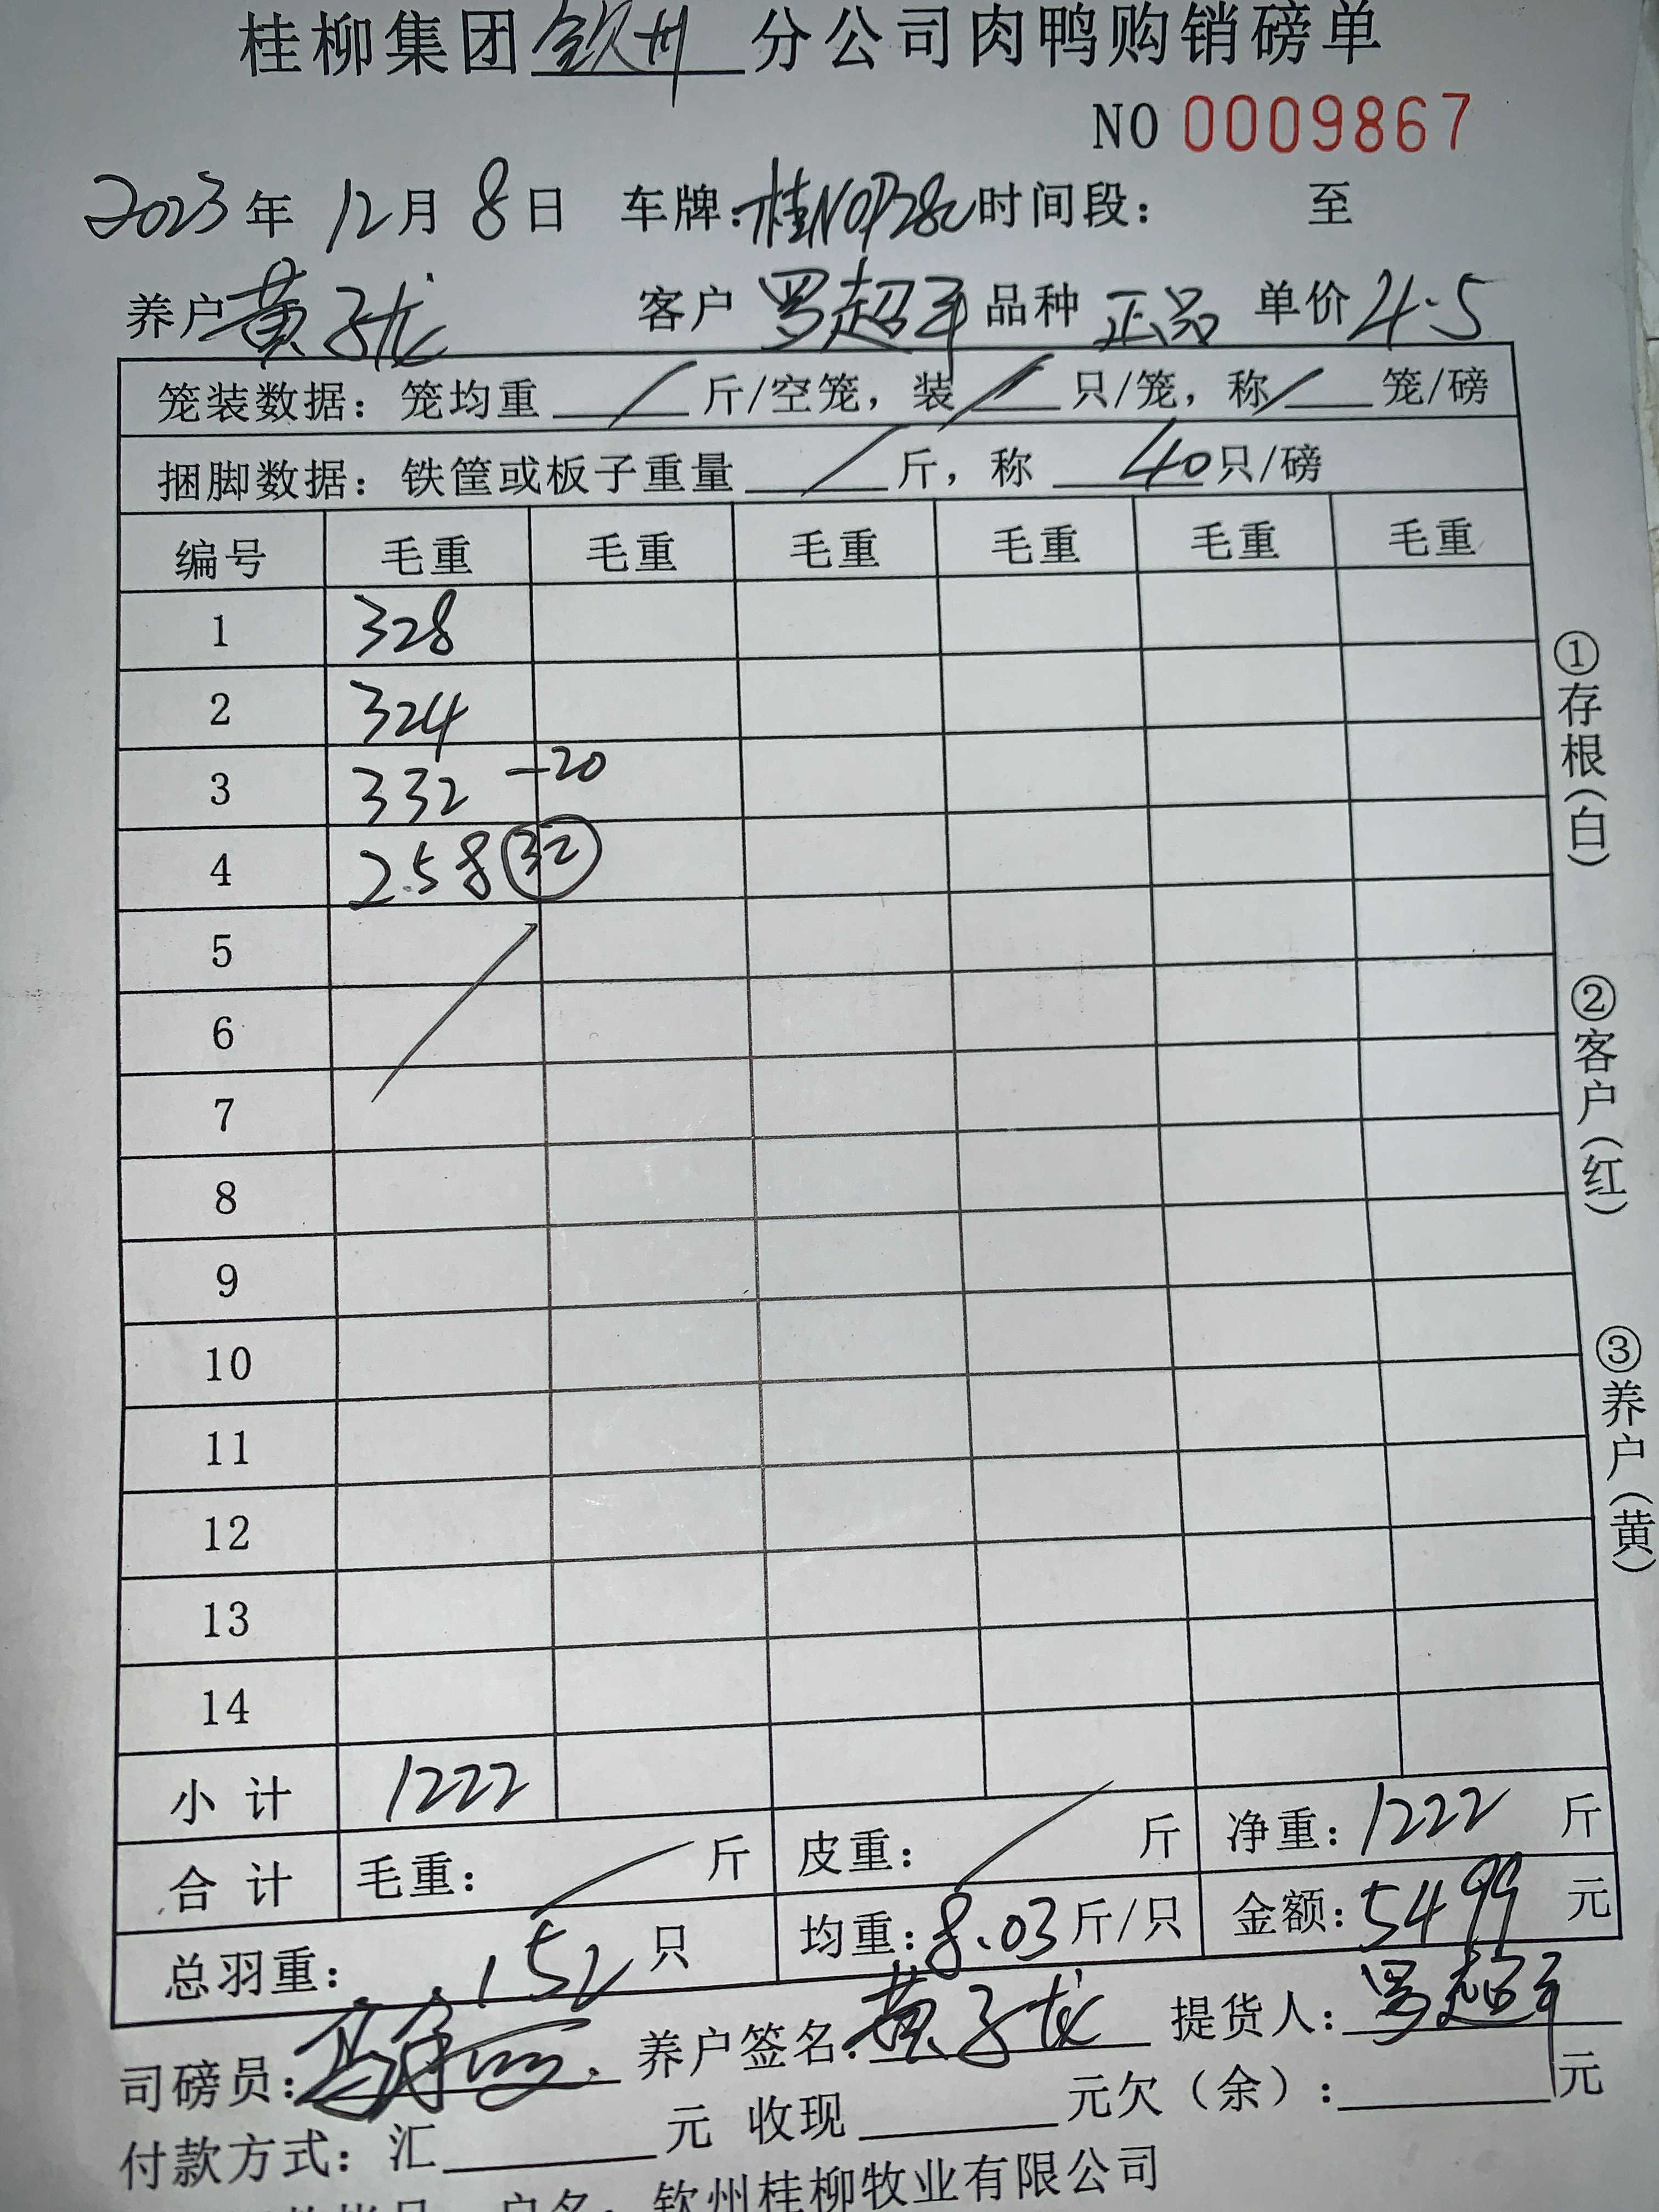 桂柳集团钦州分公司肉鸭购销磅单
NO 0009867
2023年 12月 8日 车牌: 时间段: 至
养户黄子龙 客户 罗超 品种 正品 单价4.5
笼装数据: 笼均重 / 斤/空笼, 装 / 只/笼, 称 / 笼/磅
捆脚数据: 铁筐或板子重量 / 斤, 称 40只/磅
编号 毛重 毛重 毛重 毛重 毛重 毛重
1 328
2 324
3 332 -20
4 258 32
5
6
7
8
9
10
11
12
13
14
小计 1222
合计 毛重: 斤 皮重: 斤 净重: 1222 斤
总羽重: 152 只 均重: 8.03斤/只 金额: 5499 元
司磅员: 养户签名: 黄子龙 提货人: 罗超
付款方式: 汇 元 收现 元欠(余): 元
户名: 钦州桂柳牧业有限公司
①存根(白)
②客户(红)
③养户(黄)